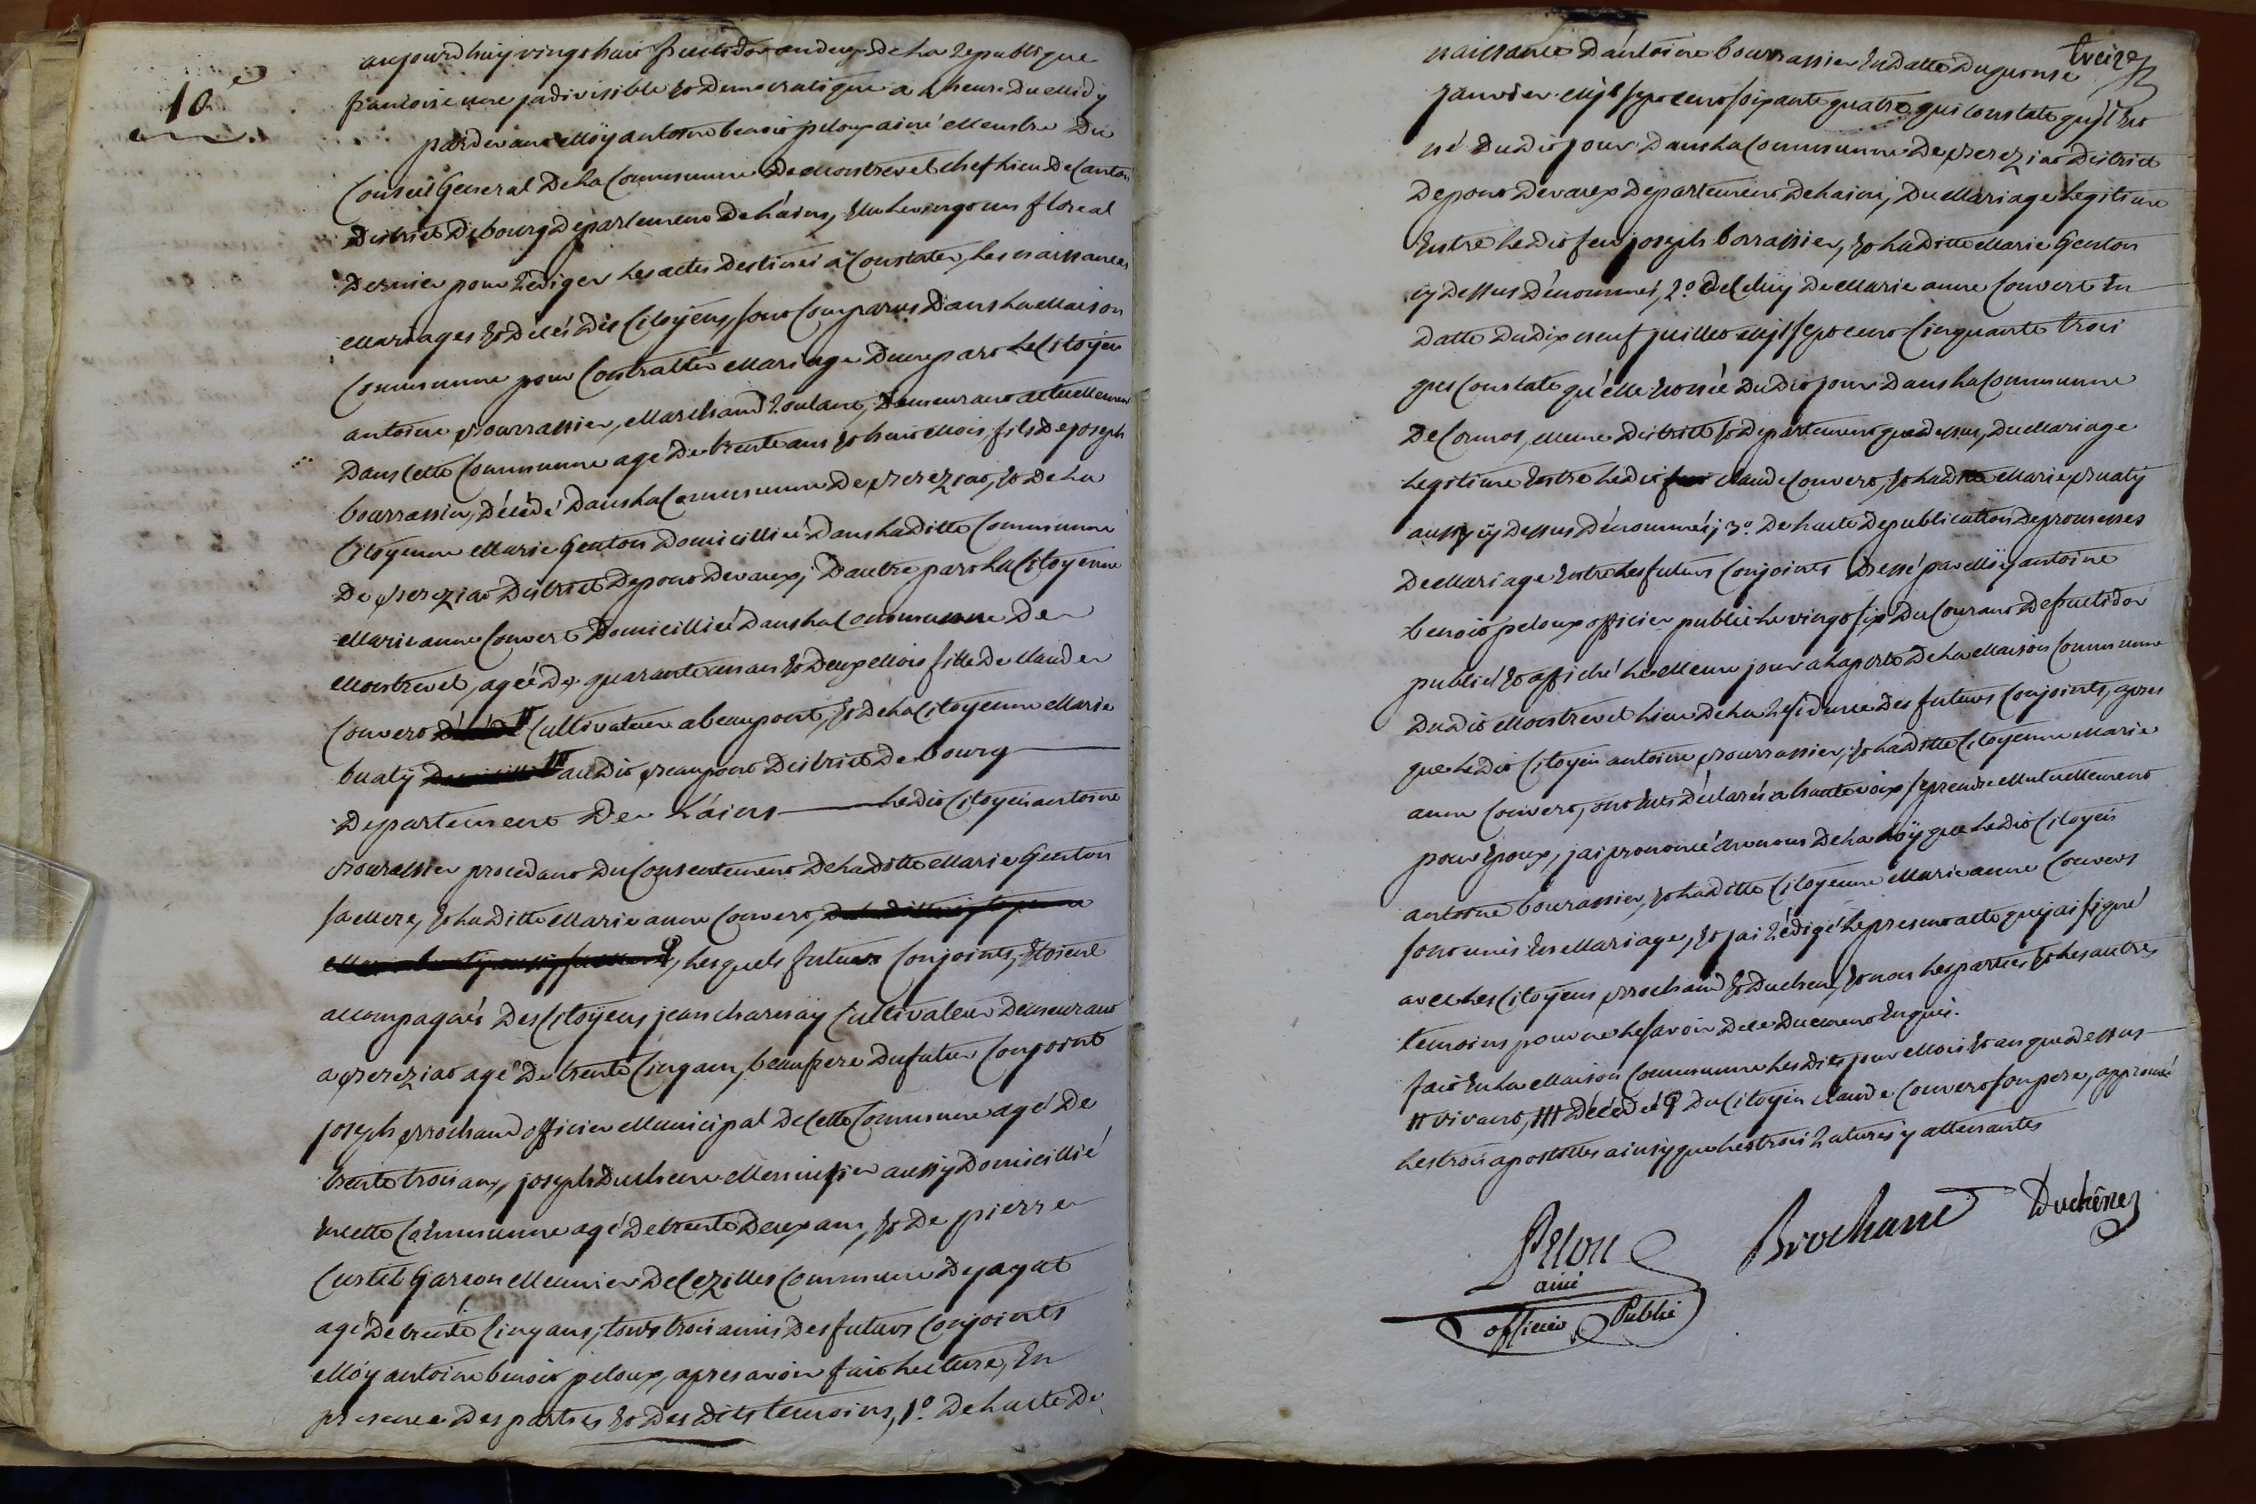 10e
aujourdhuy vingt huit fructidor an deux De La Republique
francoise une jndivisible Et Democratique a L heure Du Midy
pardevant Moÿ antoine benoit peloux ainé Membre Du
Conseil General De La Commune De Montrevel chef Lieu De Canton
District De bourg Departement De L'ains, Elu Le vingt un floreal
Dernier pour Rediger Les actes Destinés a Constater, Les naissances
Mariages Et Décés Des Citoÿens, sont Comparus Dans La Maison
Commune pour Contracter Mariage Dune part Le Citoÿen
antoine Bourrassier, Marchand Roulant, Demeurant actuellement
Dans Cette Commune agé De trente ans Et huit Mois, fils De joseph
bourrassier, Décédé Dans La Commune De Bereziat, Et De La
Citoÿenne Marie Genton Domicilliée Dans La Ditte Commune
De Bereziat District De pont De vaux; D'autre part La Citoÿenne
Marie anne Couvert Domicilliée Dans La Commune De
Montrevel, agée De quarante un ans Et Deux Mois fille De Claude
Couvert Décédé # Cultivateur a beaupont, Et De La Citoÿenne Marie
buatÿ ### audit Beaupont District De bourg
Departement De L'ains Ledit Citoÿen antoine
Bourassier procedant Du Consentement De La Ditte Marie Genton
sa Mere, Et La Ditte Marie anne Couvert,
Lesquels futurs Conjoints, Etoient
accompagnés Des Citoÿens jean charnaÿ Cultivateur Demeurant
a Bereziat agé De trente Cinq ans, beaupere Du futur Conjoint
joseph Brochand officier Municipal De Cette Commune agé De
trente trois ans, joseph Duchene Menuisier aussÿ Domicillié
En Cette Commune agé De trente Deux ans, Et De pierre
Curtil Garcon Meunier De Cezilles Commune De jayat
agé De trente Cinq ans, tous trois amis Des futurs Conjoints
Moÿ antoine benoit peloux, apres avoir fait Lecture, En
presence Des parties Et Des Dits temoins, 1º. De Lacte De
treize
naissance D'antoine bourrassier En Datte Du quinse
janvier Mil sept cent soixante quatre qui Constate quil Est
né Dudit jour Dans La Commune De Bereziat District
De pont De vaux Departement De Lains, Du Mariage Legitime
Entre Ledit feu joseph borrassier, Et La Ditte Marie Genton
Cy Dessus Dénommés, 2º. De Celuÿ De Marie anne Couvert En
Datte Du Dix neuf juillet Mil sept cent Cinquante trois
qui Constate qu'elle Est née Dudit jour Dans La Commune
De Cormos, Meme District Et Departement que Dessus, Du Mariage
Legitime Entre Ledit Claude Couvert, Et La Ditte Marie Buatÿ
aussy Cÿ Dessus Dénommés; 3º. De Lacte De publication De promesses
De Mariage Entre Les futurs Conjoints Dressé par Moÿ antoine
benoit peloux officier public Le vingt six Du Courant De fructidor
publié Et affiché Le Meme jour a La porte De La Maison Commune
Dudit Montrevel Lieu De La Residence Des futurs Conjoints, apres
que Ledit Citoÿen antoine Bourrassier, Et La Ditte Citoÿenne Marie
anne Couvert, ont Eus Déclarés a haute voix se prendre Mutuellement
pour Epoux, jai prononcé au nom De La Loÿ que Ledit Citoÿen
antoine bourassier, Et La Ditte Citoÿenne Marie anne Couvert
sont unis En Mariage, Et jai Rédigé Le present acte que jai signé
avec Les Citoÿens Brochand Et Duchene, Et non Les parties Et Les autres
temoins pour ne Le savoir De Ce Duement Enquis.
fait En La Maison Commune Les Dits jour Mois Et an que Dessus
# vivant, ### Décédée ꝗ Du Citoÿen Claude Couvert son pere, approuvé
Les trois apostilles ainsÿ que Les trois Ratures y attenantes
Pelou
ainé
officier Public
Brochand
Duchêne